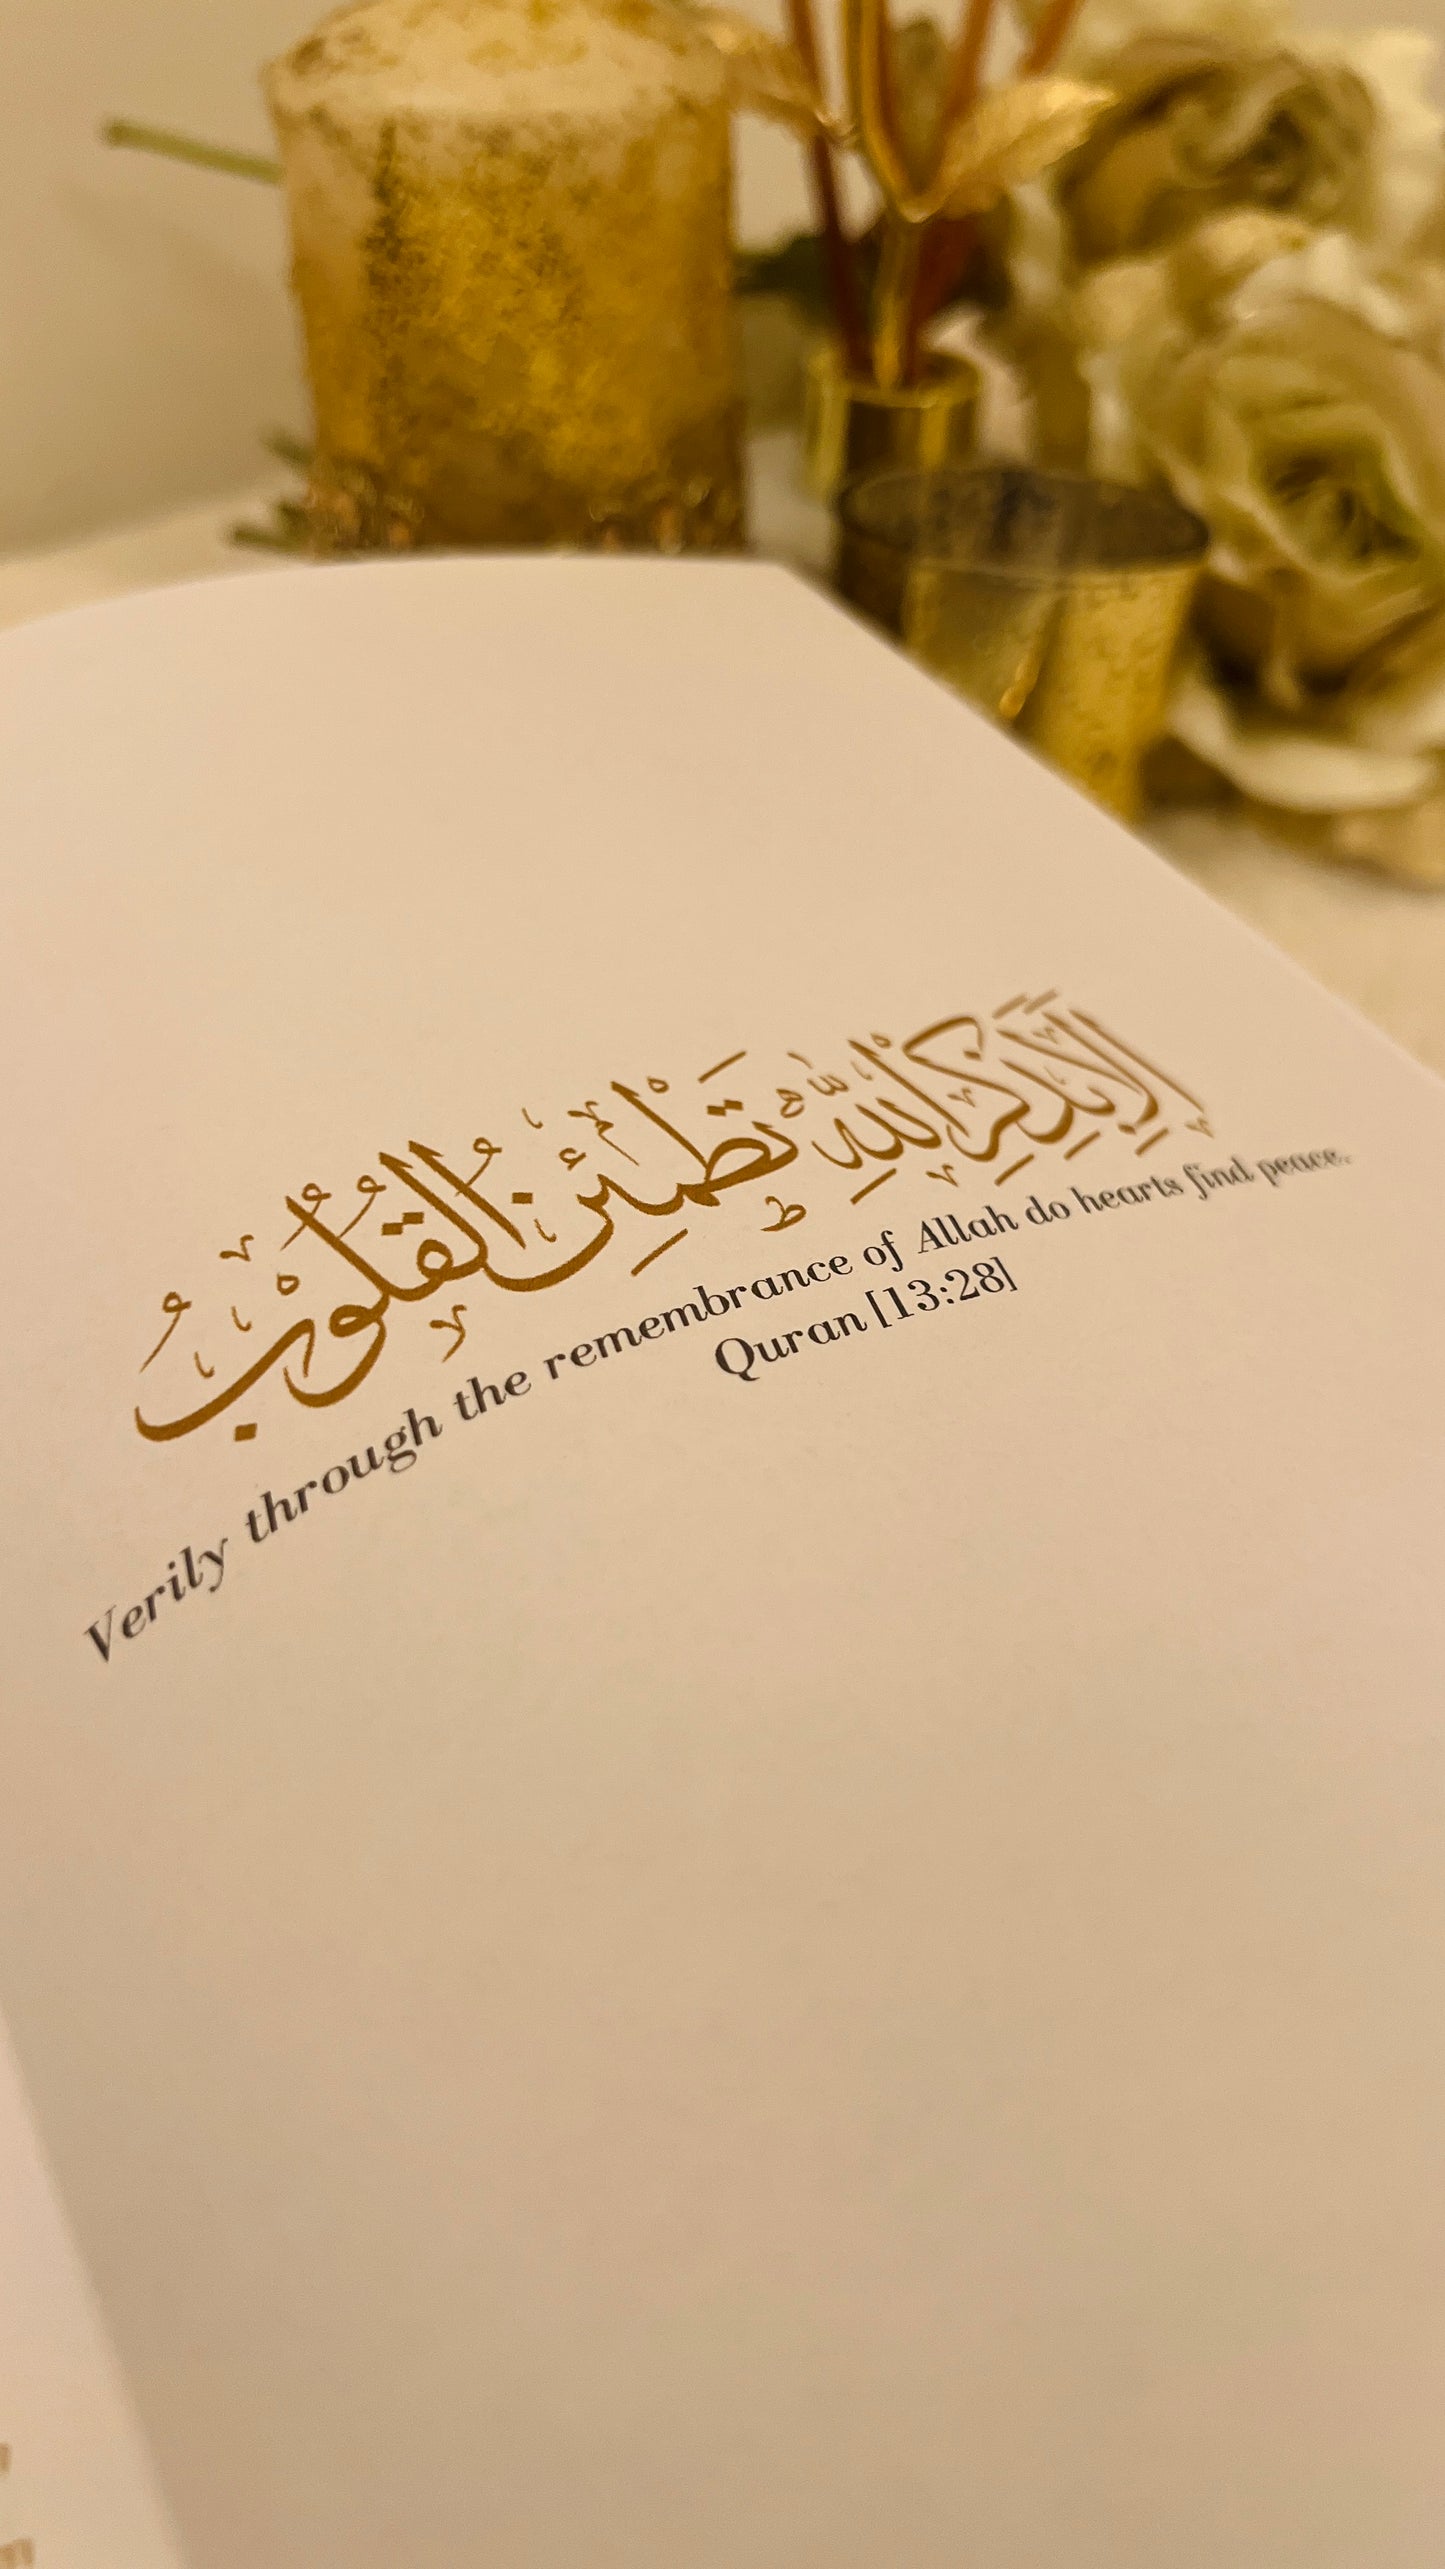 أَلَا بِذِكْرِ اللَّهِ تَطْمَئِنُّ الْقُلُوبُ
Verily through the remembrance of Allah do hearts find peace.
Quran [13:28]